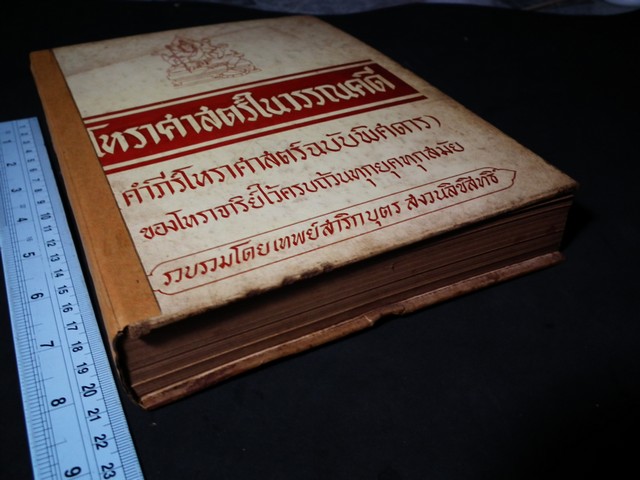 โหราศาสตร์ในวรรณคดี
คำภีร์โหราศาสตร์ฉบับพิศดาร)
ของโหราจาริย์ไว้ครบถ้วนทุกยุคทุกสมัย
รวบรวมโดย เทพย์ สาริกบุตร สงวนลิขสิทธิ์
1
2
3
4
5
6
7
8
9
10
11
12
13
14
15
16
17
18
19
20
21
22
23